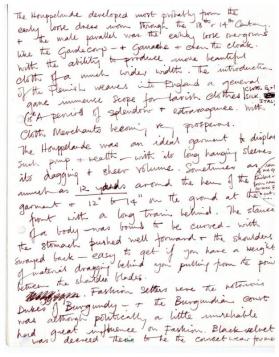 The Houppelande developed most probably from the
early loose dress worn through the 13th & 14th Century.
male parallel was the early loose overgarment
like the Gardecorp - + Ganache + then the cloak.
with the ability to produce more beautiful
cloth of a much wider width. The introduction
of the Flemish weavers into England a general
gave immense scope for lavish clothes
a period of splendor & extravagance. with
Cloth Merchants becoming very prosperous.
The Houppelande was an ideal garment to display
such pomp & wealth - with its long hanging sleeves
its dragging & sheer volume. Sometimes as
much as 12 yards around the hem of the
garment + 12" to 14" on the ground at the
front with a long train behind. The stance
of a body was bound to be curved - with
the stomach pushed well forward & the shoulders
swayed back - easy to get if you have a weight
of material dragging behind you pulling from the point
between the shoulder blades.
Fashion setters were the notorious
Dukes of Burgundy - + the Burgundian court
was although politically a little unreliable
had great influence on Fashion. Black velvet
was deemed there to be the correct wear for